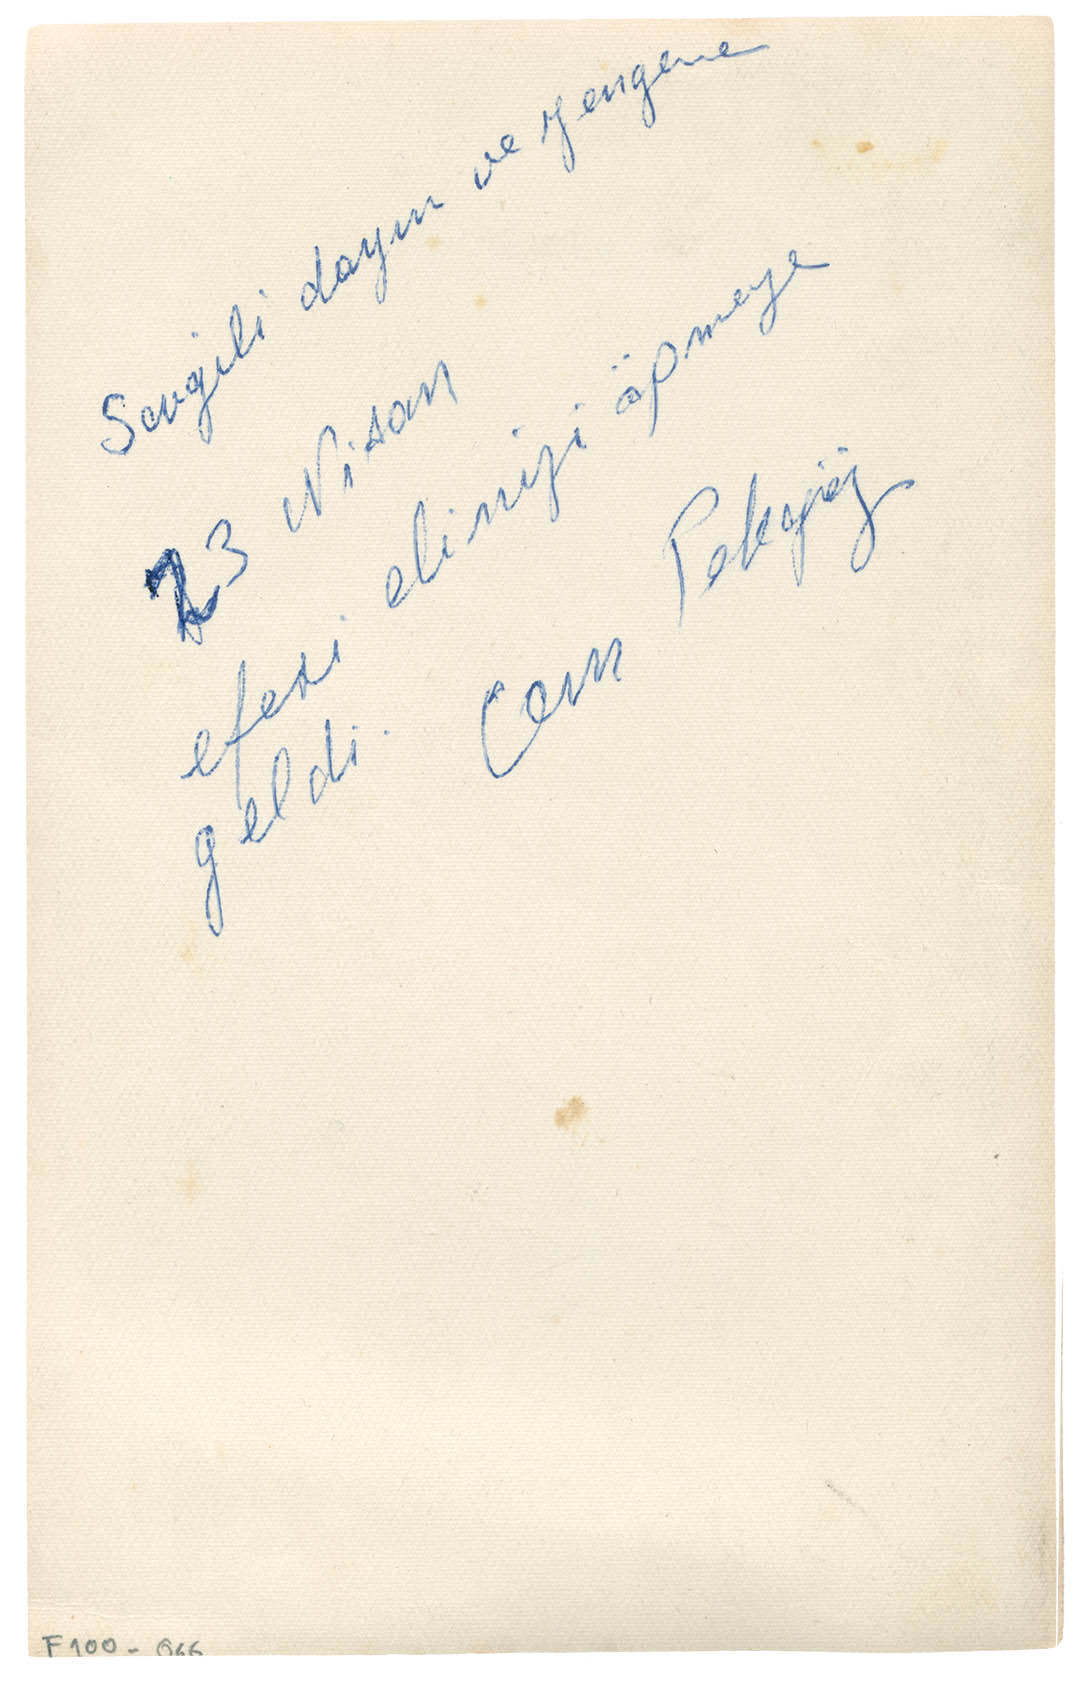 Sevgili dayım ve yengeme
23 Nisan
efesi elinizi öpmeye
geldi. Cem Pekgöz
F100 - 066